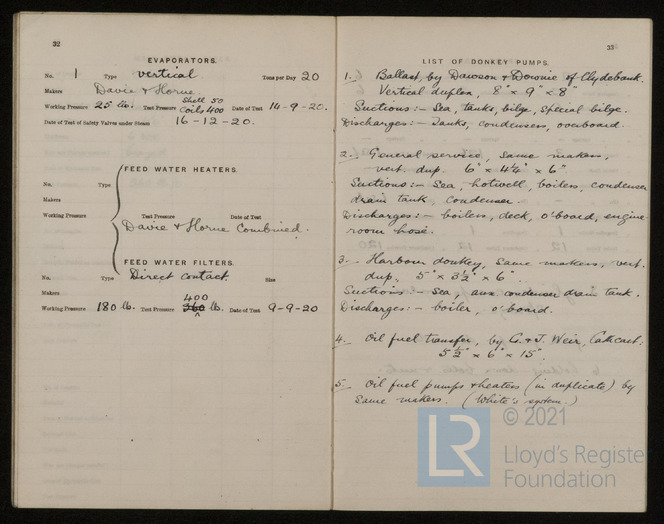 32
EVAPORATORS.
No. 1 Type vertical Tons per Day 20
Makers Davie & Horne.
Working Pressure 25 lb. Test Pressure Shell 50 Coils 400 Date of Test 14-9-20.
Date of Test of Safety Valves under Steam 16-12-20.
FEED WATER HEATERS.
No. Type
Makers
Working Pressure Test Pressure Date of Test
Davie & Horne Combined.
FEED WATER FILTERS.
No. Type Direct Contact. Size
Makers
Working Pressure 180 lb. Test Pressure 400 360 lb. Date of Test 9-9-20
33
LIST OF DONKEY PUMPS.
1. Ballast, by Dawson & Downie of Clydebank.
Vertical duplex, 8" × 9" × 8"
Suctions:- Sea, tanks, bilge, special bilge.
Discharges:- Tanks, condensers, overboard.
2. General service, same makers,
vert. dup. 6" × 4¼" × 6"
Suctions:- Sea, hotwell, boilers, condenser
drain tank, condenser.
Discharges:- boilers, deck, o'board, engine
room hose.
3. Harbour donkey, same makers, vert.
dup. 5" × 3½" × 6"
Suctions:- Sea, aux. condenser drain tank.
Discharges:- boiler, o'board.
4. Oil fuel transfer, by G. & J. Weir, Cathcart.
5½" × 6" × 15"
5. Oil fuel pumps & heaters (in duplicate) by
same makers. (White's system.)
LR
© 2021
Lloyd's Register
Foundation